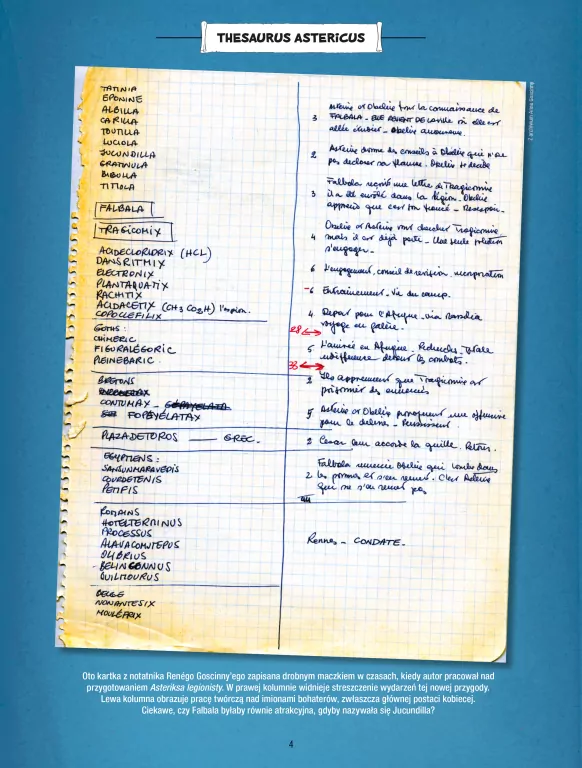 THESAURUS ASTERICUS
TATINIA
EPONINE
ALBILLA
CARILLA
TOUTILLA
LUCIOLA
JUCUNDILLA
GRATINULA
BIBULLA
TITILLA
FALBALA
TRAGICOMIX
ACIDECLORIDRIX (HCL)
DANSRITMIX
ELECTRONIX
PLANTAQUATIX
RACHITIX
ACIDACETIX (CH3 CO2H) l'espion.
COPOCLEFILIX
GOTHS :
CHIMERIC
FIGURALÉGORIC
PLEINEBARIC.
BRETONS
CONTUMAX -
FOPEYELATAX
PLAZADETOROS — GREC.
EGYPTIENS :
SANGUNMARAVEDIS
COURDETENIS
PETIPIS
ROMAINS
HOTELTERMINUS
PROCESSUS
ALAVACOMUTEPUS
OLIBRIUS
BELINGONNUS
QUILMOURUS
BELGE
NONANTESIX
MOULÉFRIX
Astérix et Obélix font la connaissance de
3 FALBALA - QUI REVIENT DE LA VILLE où elle est
allée étudier - Obélix amoureux.
2 Astérix donne des conseils à Obélix qui n'ose
pas déclarer sa flamme. Obélix se décide
Falbala reçoit une lettre de Tragicomix
3 il a été enrôlé dans la légion. Obélix
apprend que c'est son fiancé - Désespoir.
Obélix et Astérix vont chercher Tragicomix
4 mais il est déjà parti - Une seule solution
s'engager -
6 L'engagement, conseil de révision, incorporation
-6 Entrainement. Vie du camp.
4 Départ pour l'Afrique. via Massilia
voyage en galère.
28
5 L'arrivée en Afrique. Recherches. Totale
indifférence devant les combats.
38
2 Ils apprennent que Tragicomix est
prisonnier des ennemis
5 Astérix et Obélix provoquent une offensive
pour le délivrer.
2 César leur accorde la quille. Retour.
Falbala remercie Obélix qui tombe dans
2 les pommes et s'en remet. C'est Astérix
qui ne s'en remet pas
44
Rennes - CONDATE -
Oto kartka z notatnika Renégo Goscinny'ego zapisana drobnym maczkiem w czasach, kiedy autor pracował nad
przygotowaniem Asteriksa legionisty. W prawej kolumnie widnieje streszczenie wydarzeń tej nowej przygody.
Lewa kolumna obrazuje pracę twórczą nad imionami bohaterów, zwłaszcza głównej postaci kobiecej.
Ciekawe, czy Falbala byłaby równie atrakcyjna, gdyby nazywała się Jucundilla?
4